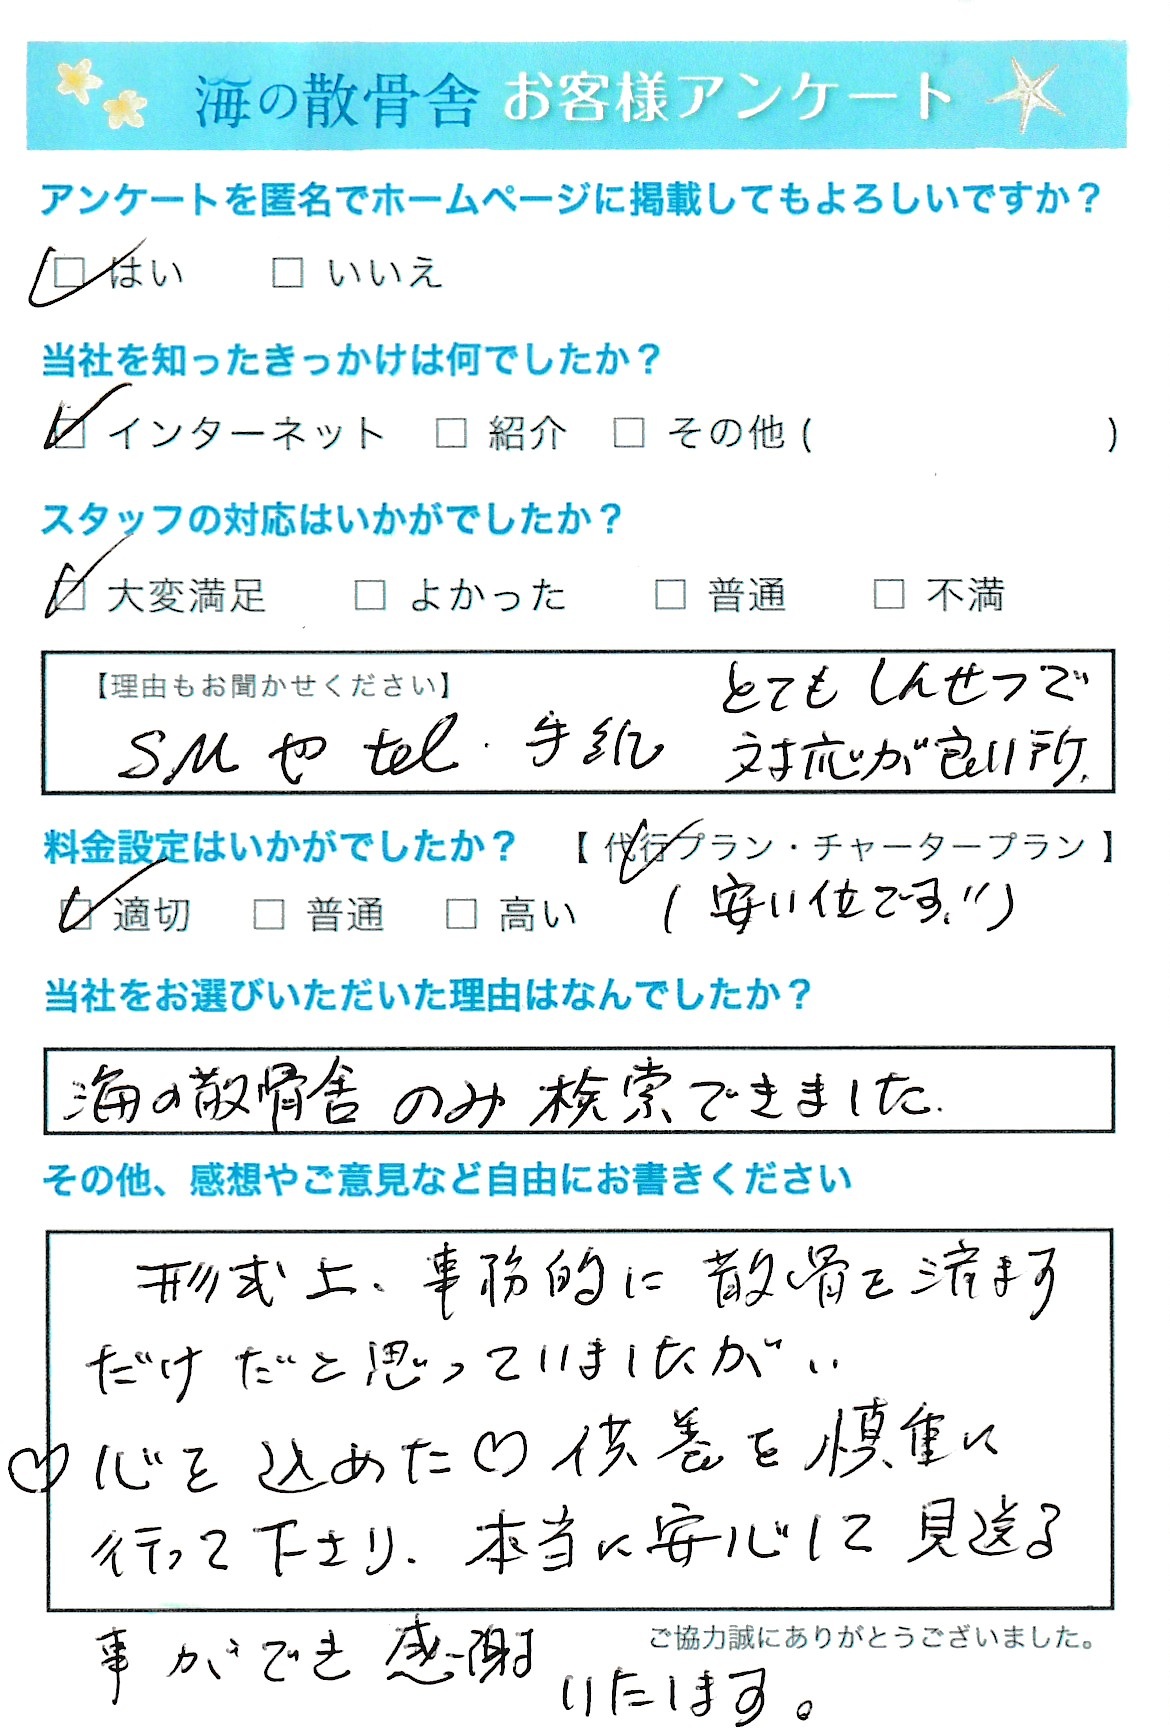 海の散骨舎 お客様アンケート
アンケートを匿名でホームページに掲載してもよろしいですか？
☑ はい □ いいえ
当社を知ったきっかけは何でしたか？
☑ インターネット □ 紹介 □ その他 ( )
スタッフの対応はいかがでしたか？
☑ 大変満足 □ よかった □ 普通 □ 不満
【理由もお聞かせください】
SMや tel・手紙
とてもしんせつで
対応が良い所.
料金設定はいかがでしたか？ 【 代行プラン・チャータープラン 】
☑ 適切 □ 普通 □ 高い (安い位です!!)
当社をお選びいただいた理由はなんでしたか？
海の散骨舎 のみ 検索できました.
その他、感想やご意見など自由にお書きください
形式上、事務的に 散骨を済ます
だけ だと思っていましたが、、
♡心を込めた♡供養を慎重に
行って下さり、本当に安心して見送る
事ができ 感謝
いたします。
ご協力誠にありがとうございました。